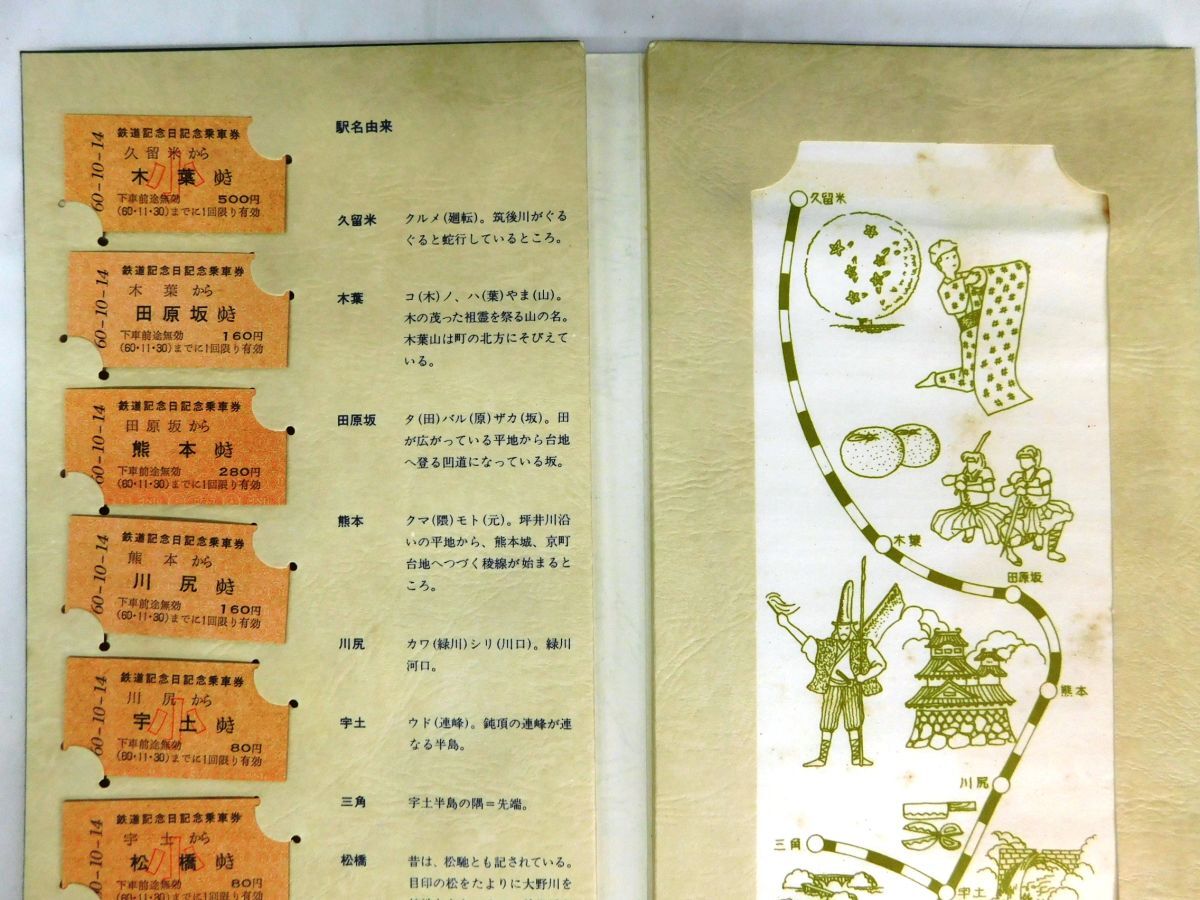 鉄道記念日記念乗車券
久留米から
木葉ゆき
小
下車前途無効 500円
(60・11・30)までに1回限り有効
60-10-14
鉄道記念日記念乗車券
木葉から
田原坂ゆき
下車前途無効 160円
(60・11・30)までに1回限り有効
60-10-14
鉄道記念日記念乗車券
田原坂から
熊本ゆき
下車前途無効 280円
(60・11・30)までに1回限り有効
60-10-14
鉄道記念日記念乗車券
熊本から
川尻ゆき
下車前途無効 160円
(60・11・30)までに1回限り有効
60-10-14
鉄道記念日記念乗車券
川尻から
宇土ゆき
小
下車前途無効 80円
(60・11・30)までに1回限り有効
60-10-14
鉄道記念日記念乗車券
宇土から
松橋ゆき
小
下車前途無効 80円
(60・11・30)までに1回限り有効
0-10-14
駅名由来
久留米 クルメ(廻転)。筑後川がぐる
ぐると蛇行しているところ。
木葉 コ(木)ノ、ハ(葉)やま(山)。
木の茂った祖霊を祭る山の名。
木葉山は町の北方にそびえて
いる。
田原坂 タ(田)バル(原)ザカ(坂)。田
が広がっている平地から台地
へ登る凹道になっている坂。
熊本 クマ(隈)モト(元)。坪井川沿
いの平地から、熊本城、京町
台地へつづく稜線が始まると
ころ。
川尻 カワ(緑川)シリ(川口)。緑川
河口。
宇土 ウド(連峰)。鈍頂の連峰が連
なる半島。
三角 宇土半島の隅=先端。
松橋 昔は、松馳とも記されている。
目印の松をたよりに大野川を
久留米
木葉
田原坂
熊本
川尻
三角
宇土